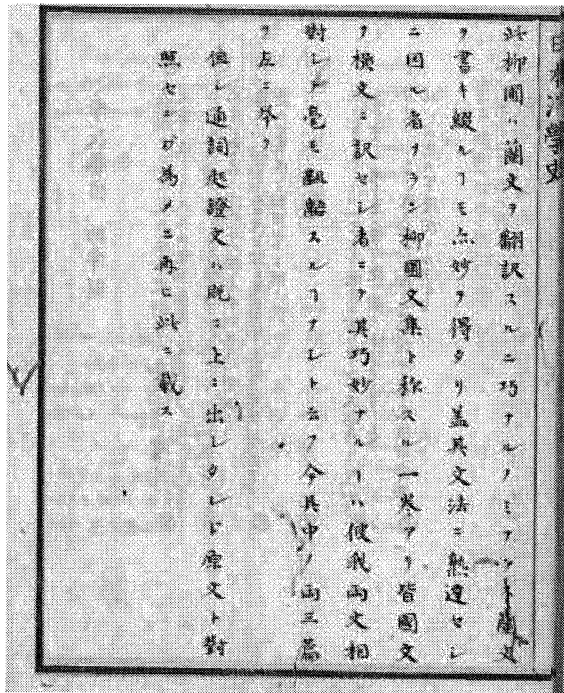 日本洋学史
此柳圃ハ蘭文ヲ翻訳スルニ巧ナルノミアラズ蘭文
ヲ書キ綴ルヿモ亦妙ヲ得タリ蓋其文法ニ熟達セシ
ニ因ル者ナラン柳圃文集ト称スル一巻アリ皆國文
ヲ横文ニ訳セシ者ニテ其巧妙ナルヿハ彼我両文相
對シテ毫モ齟齬スルヿナシト云フ今其中ノ両三篇
ヲ左ニ挙ク
但シ通詞起證文ハ既ニ上ニ出シタレド原文ト對
照センガ為メニ再ヒ此ニ載ス